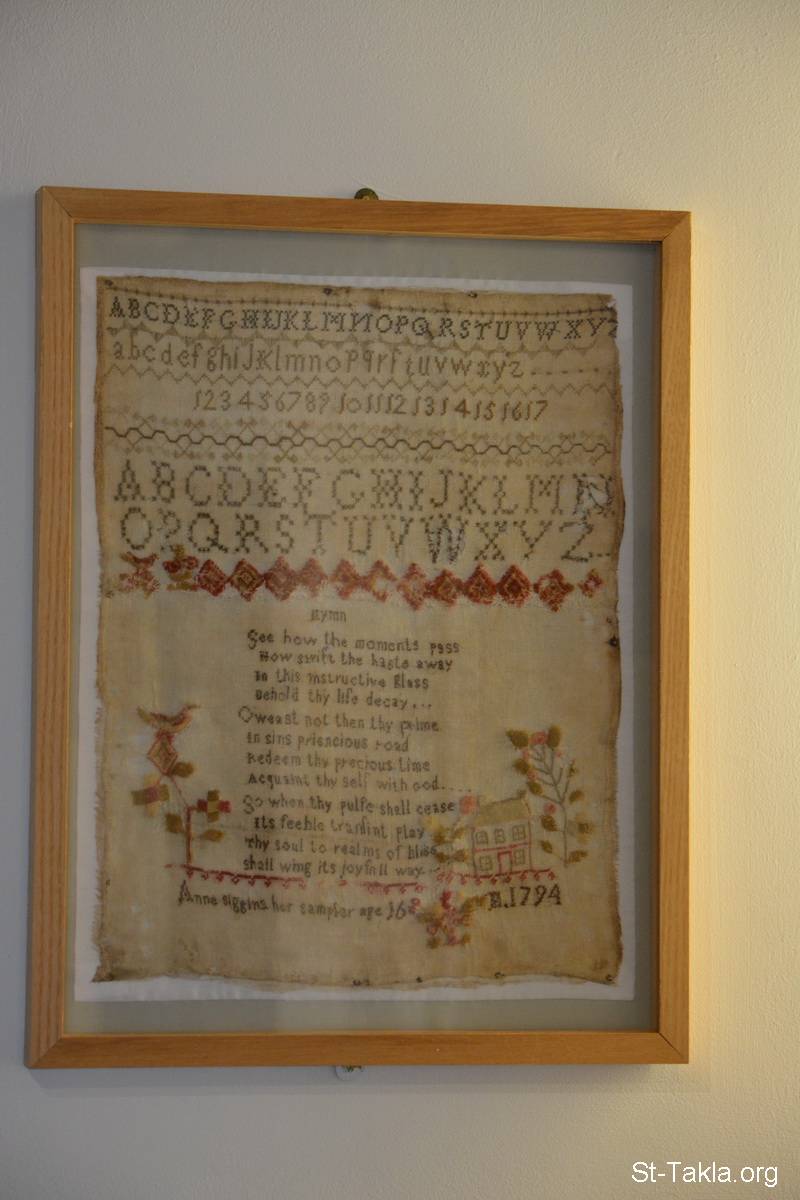 ABCDEFGHIJKLMNOPQRSTUVWXYZ
abcdefghiJklmnopqrſtuvwxyz.......
1234567891011121314151617
ABCDEFGHIJKLMN
OPQRSTUVWXYZ..
Hymn
See how the moments pass
How swift the haste away
In this instructive Glass
Behold thy life decay...
O weast not then thy prime
In sins road
Redeem thy precious time
Acquaint thy self with God....
So when thy pulſe shall cease
Its feeble tranſint play
Thy soul to realms of bliss
shall wing its joyfull way..
Anne her sampler age 16
1794
St-Takla.org